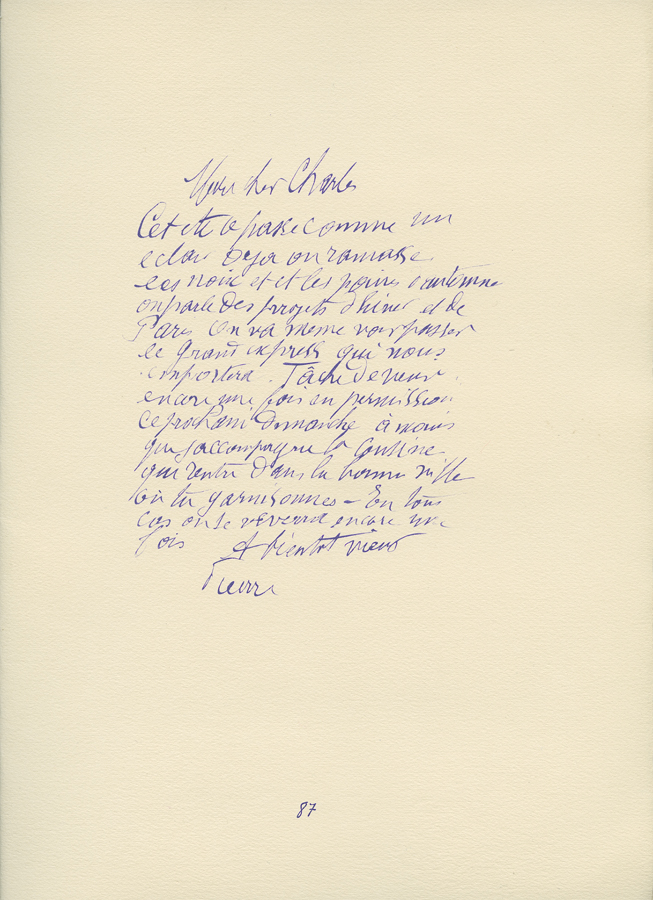 Mon cher Charles
Cet été a passé comme un
eclair Deja on ramasse
les noix et et les poires d'automne
on parle Des projets d'hiver et de
Paris On va meme voir passer
le grand express qui nous
emportera. Tâche de venir
encore une fois en permission
ce prochain Dimanche à moins
que j'accompagne la Cousine
qui rentre Dans la bonne ville
où tu garnisonnes – En tous
cas on se reverra encore une
fois A bientot vieux
Pierre
87